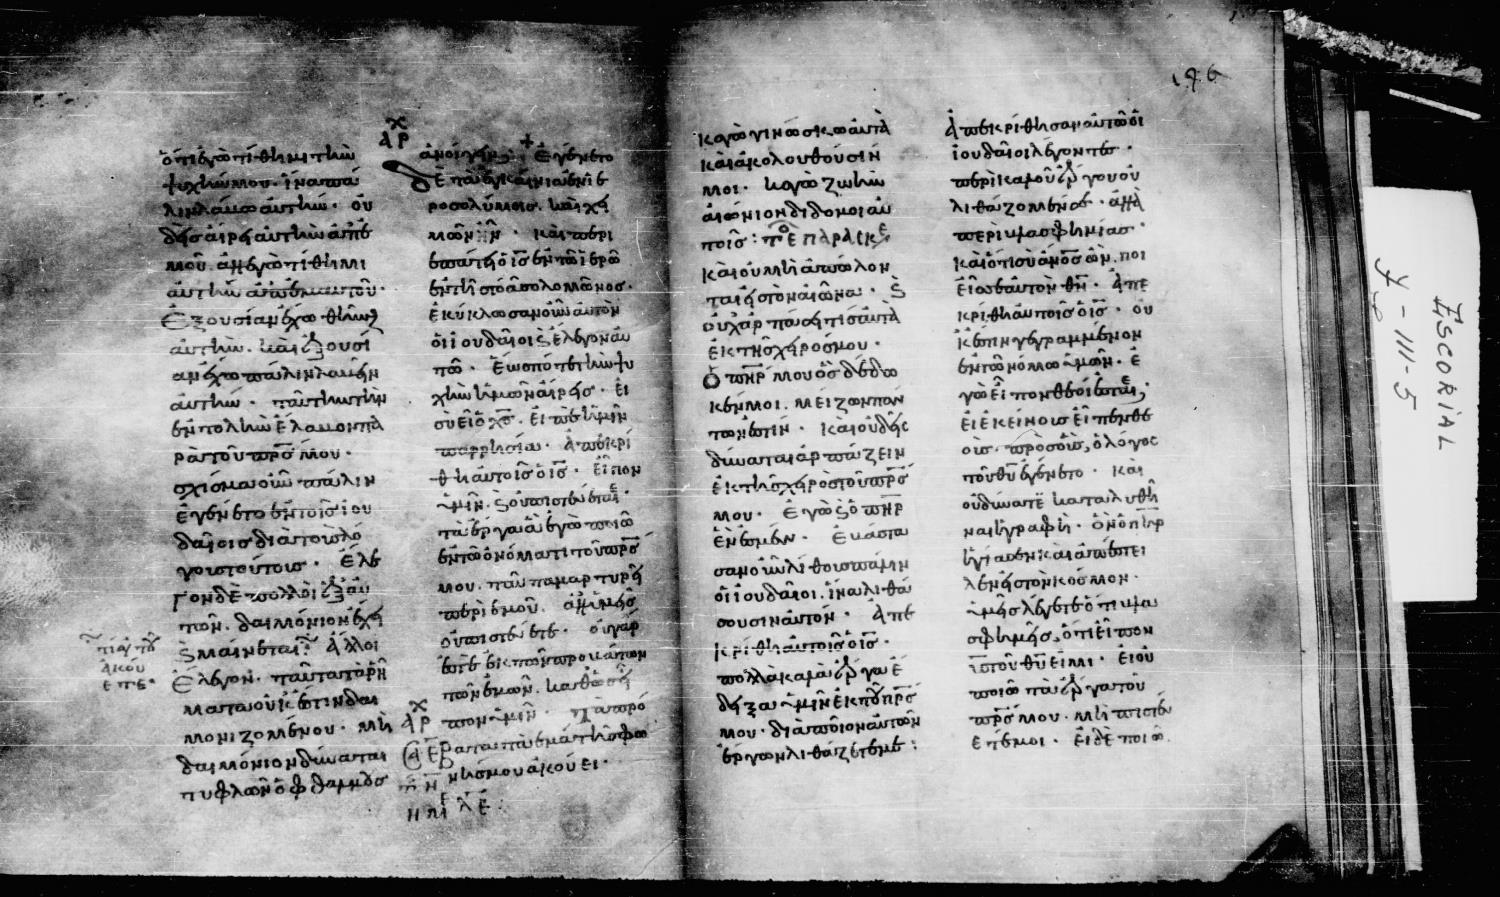 ὅτι ἐγὼ τίθημι τὴν
ψυχήν μου. ἵνα πά
λιν λάβω αὐτήν. οὐ
δεὶς αἴρει αὐτὴν ἀπ' ἐ
μοῦ. ἀλλ' ἐγὼ τίθημι
αὐτὴν ἀπ' ἐμαυτοῦ.
Ἐξουσίαν ἔχω θεῖναι
αὐτήν. καὶ ἐξουσί
αν ἔχω πάλιν λαβεῖν
αὐτήν. ταύτην τὴν
ἐντολὴν ἔλαβον πα
ρὰ τοῦ πρσ μου.
σχίσμα οὖν πάλιν
ἐγένετο ἐν τοῖς ἰου
δαίοις διὰ τοὺς λό
γους τούτους. ἔλε
γον δὲ πολλοὶ ἐξ αὐ
τῶν. δαιμόνιον ἔχει
καὶ μαίνεται. ἄλλοι
ἔλεγον. ταῦτα τὰ ῥή
ματα οὐκ ἔστιν δαι
μονιζομένου. μὴ
δαιμόνιον δύναται
τυφλῶν ὀφθαλμοὺς
τί αὐτοῦ
ἀκού
ετε.
ΑΡΧ
ἀνοίγειν; + Ἐγένετο
δὲ τὰ ἐγκαίνια ἐν ἱε
ροσολύμοις. καὶ χει
μὼν ἦν. καὶ περι
επάτει ὁ ισ ἐν τῷ ἱερῷ
ἐν τῇ στοᾷ σολομῶνος.
Ἐκύκλωσαν οὖν αὐτὸν
οἱ ἰουδαῖοι καὶ ἔλεγον αὐ
τῷ. ἕως πότε τὴν ψυ
χὴν ἡμῶν αἴρεις. εἰ
σὺ εἶ ὁ χσ. εἰπὲ ἡμῖν
παρρησίᾳ. ἀπεκρί
θη αὐτοῖς ὁ ισ. εἶπον
ὑμῖν. καὶ οὐ πιστεύετε.
τὰ ἔργα ἃ ἐγὼ ποιῶ
ἐν τῷ ὀνόματι τοῦ πρσ
μου. ταῦτα μαρτυρεῖ
περὶ ἐμοῦ. ἀλλ' ὑμεῖς
οὐ πιστεύετε. οὐ γάρ
ἐστε ἐκ τῶν προβάτων
τῶν ἐμῶν. καθὼς εἶ
ΑΡΧ
πον ὑμῖν. Τὰ πρό
βατα τὰ ἐμὰ τῆς φω
νῆς μου ἀκούει.
κἀγὼ γινώσκω αὐτὰ
καὶ ἀκολουθοῦσίν
μοι. κἀγὼ ζωὴν
αἰώνιον δίδομοι αὐ
τοῖς: ΠΑΡΑΣΚΕ
καὶ οὐ μὴ ἀπόλον
ται εἰς τὸν αἰῶνα. καὶ
οὐχ ἁρπάσει τις αὐτὰ
ἐκ τῆς χειρός μου.
Ὁ πηρ μου ὃς δέδω
κέν μοι. μείζων πάν
των ἐστίν. καὶ οὐδεὶς
δύναται ἁρπάζειν
ἐκ τῆς χειρὸς τοῦ πρσ
μου. Ἐγὼ καὶ ὁ πηρ
ἕν ἐσμεν. Ἐβάστα
σαν οὖν λίθους πάλιν
οἱ ἰουδαῖοι. ἵνα λιθά
σουσιν αὐτόν. ἀπε
κρίθη αὐτοῖς ὁ ισ.
πολλὰ καλὰ ἔργα ἔ
δειξα ὑμῖν ἐκ τοῦ πρσ
μου. διὰ ποῖον αὐτῶν
ἔργων λιθάζετέ με:
196
Ἀπεκρίθησαν αὐτῷ οἱ
ἰουδαῖοι λέγοντες.
περὶ καλοῦ ἔργου οὐ
λιθάζομέν σε. ἀλλὰ
περὶ βλασφημίας.
καὶ ὅτι σὺ ανοσ ὢν. ποι
εῖς ἑαυτὸν θν. Ἀπε
κρίθη αὐτοῖς ὁ ισ. οὐ
κ ἔστιν γεγραμμένον
ἐν τῷ νόμῳ ὑμῶν. ἐ
γὼ εἶπον θεοί ἐστε.
εἰ ἐκείνους εἶπεν θε
οὺς. πρὸς οὓς, ὁ λόγος
τοῦ θυ ἐγένετο. καὶ
οὐ δύναται καταλυθῆ
ναι ἡ γραφή. ὃν ὁ πηρ
ἡγίασεν καὶ ἀπέστει
λεν εἰς τὸν κόσμον.
ὑμεῖς λέγετε ὅτι βλα
σφημεῖς, ὅτι εἶπον
υσ τοῦ θυ εἰμι. εἰ οὐ
ποιῶ τὰ ἔργα τοῦ
πρσ μου. μὴ πιστεύ
ετέ μοι. εἰ δὲ ποιῶ.
ESCORIAL
y - III - 5